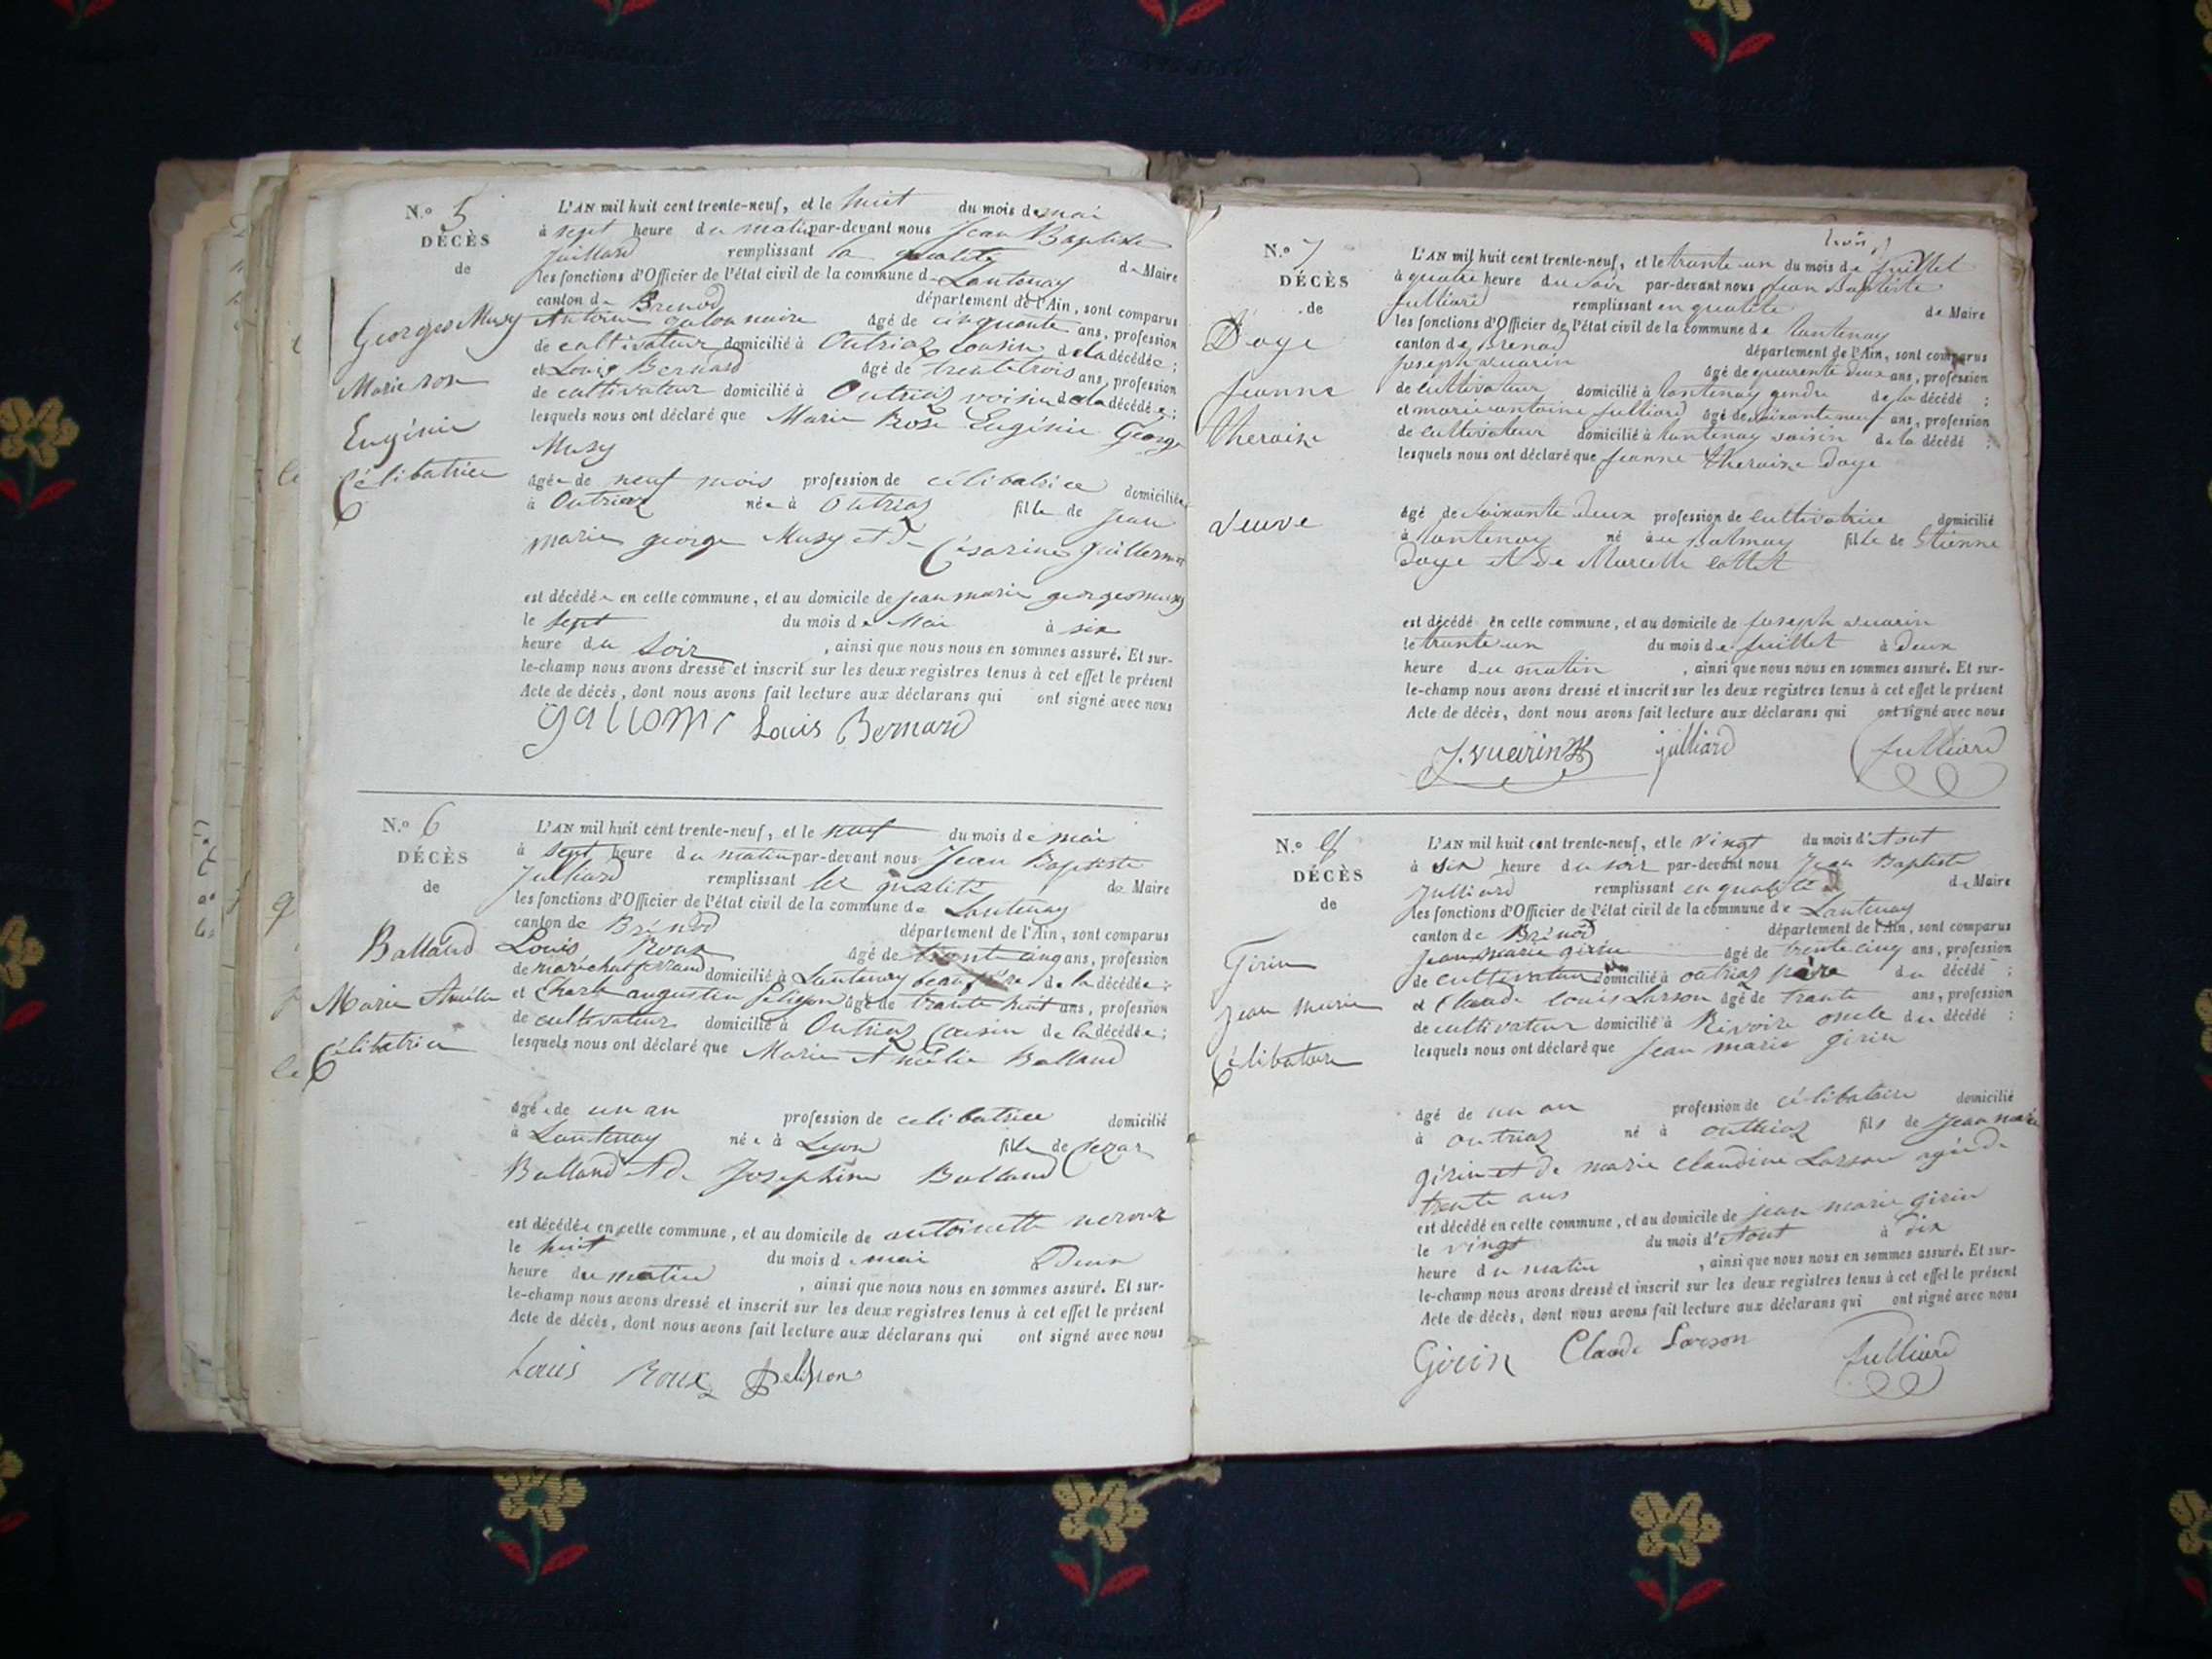 N.o 5
DÉCÈS
de
Georges Musy
Marie rose
Eugénie
Célibatrice
L'AN mil huit cent trente-neuf, et le huit du mois de mai
à sept heure du matin par-devant nous Jean Baptiste
Juillard remplissant la qualité de Maire
les fonctions d'Officier de l'état civil de la commune d Lantenay
canton de Brenod département de l'Ain, sont comparus
âgé de cinquante ans, profession
de cultivateur domicilié à Outriaz cousin de la décédée ;
et Louis Bernard âgé de trente trois ans, profession
de cultivateur domicilié à Outriaz voisin de la décédée ;
lesquels nous ont déclaré que Marie Rose Eugénie George
Musy
âgée de neuf mois profession de célibatrice domiciliée
à Outriaz née à Outriaz fille de Jean
marie george Musy et de Césarine Guillermet
est décédée en cette commune, et au domicile de jean marie georges musy
le sept du mois de Mai à six
heure du Soir , ainsi que nous nous en sommes assuré. Et sur-
le-champ nous avons dressé et inscrit sur les deux registres tenus à cet effet le présent
Acte de décès, dont nous avons fait lecture aux déclarans qui ont signé avec nous
Louis Bernard
N.o 6
DÉCÈS
de
Balland
Marie Amélie
Célibatrice
L'AN mil huit cent trente-neuf, et le neuf du mois de mai
à sept heure du matin par-devant nous Jean Baptiste
Julliard remplissant la qualité de Maire
les fonctions d'Officier de l'état civil de la commune de Lantenay
canton de Brénod département de l'Ain, sont comparus
Louis Roux âgé de trente cinq ans, profession
de maréchal ferrand domicilié à Lantenay beau frère de la décédée ;
et Charle augustin Pelisson âgé de trante huit ans, profession
de cultivateur domicilié à Outriaz Cousin de la décédée ;
lesquels nous ont déclaré que Marie Amélie Balland
âgée de un an profession de celibatrice domicilié
à Lantenay née à Lyon fille de Cezar
Balland et de Josephine Balland
est décédée en cette commune, et au domicile de antoinette neroux
le huit du mois de mai Deux
heure du matin , ainsi que nous nous en sommes assuré. Et sur-
le-champ nous avons dressé et inscrit sur les deux registres tenus à cet effet le présent
Acte de décès, dont nous avons fait lecture aux déclarans qui ont signé avec nous
Louis Roux Pelisson
N.o 7
DÉCÈS
de
Doye
Jeanne
theraise
veuve
L'AN mil huit cent trente-neuf, et le trante un du mois de Juillet
à quatre heure du soir par-devant nous jean Baptiste
Julliard remplissant en qualité de Maire
les fonctions d'Officier de l'état civil de la commune de lantenay
canton de Brenod département de l'Ain, sont comparus
joseph vuarin âgé de quarente deux ans, profession
de cultivateur domicilié à lantenay gendre de la décédé ;
et marie antoine julliard âgé de soixante neuf ans, profession
de cultivateur domicilié à lantenay voisin de la décédé ;
lesquels nous ont déclaré que jeanne theraise doye
âgé de soixante deux profession de cultivatrice domicilié
à lantenay né au Balmay fille de Etienne
doye et de Marcelle collet
est décédé en cette commune, et au domicile de joseph vuarin
le trante un du mois de juillet à deux
heure du matin , ainsi que nous nous en sommes assuré. Et sur-
le-champ nous avons dressé et inscrit sur les deux registres tenus à cet effet le présent
Acte de décès, dont nous avons fait lecture aux déclarans qui ont signé avec nous
J. vuarin julliard Julliard
N.o 8
DÉCÈS
de
Girin
jean marie
Célibataire
L'AN mil huit cent trente-neuf, et le vingt du mois d'Aout
à six heure du soir par-devant nous Jean Baptiste
Julliard remplissant en qualité de Maire
les fonctions d'Officier de l'état civil de la commune de Lantenay
canton de Brénod département de l'Ain, sont comparus
jean marie girin âgé de trente cinq ans, profession
de cultivateur domicilié à outriaz père du décédé ;
et Claude louis Larson âgé de trante ans, profession
de cultivateur domicilié à Rivoire oncle du décédé ;
lesquels nous ont déclaré que jean marie girin
âgé de un an profession de célibataire domicilié
à outriaz né à outhriaz fils de jean marie
girin et de marie claudine Larson agée de
trente ans
est décédé en cette commune, et au domicile de jean marie girin
le vingt du mois d'Aout à dix
heure du matin , ainsi que nous nous en sommes assuré. Et sur-
le-champ nous avons dressé et inscrit sur les deux registres tenus à cet effet le présent
Acte de décès, dont nous avons fait lecture aux déclarans qui ont signé avec nous
Girin Claude Larson Julliard